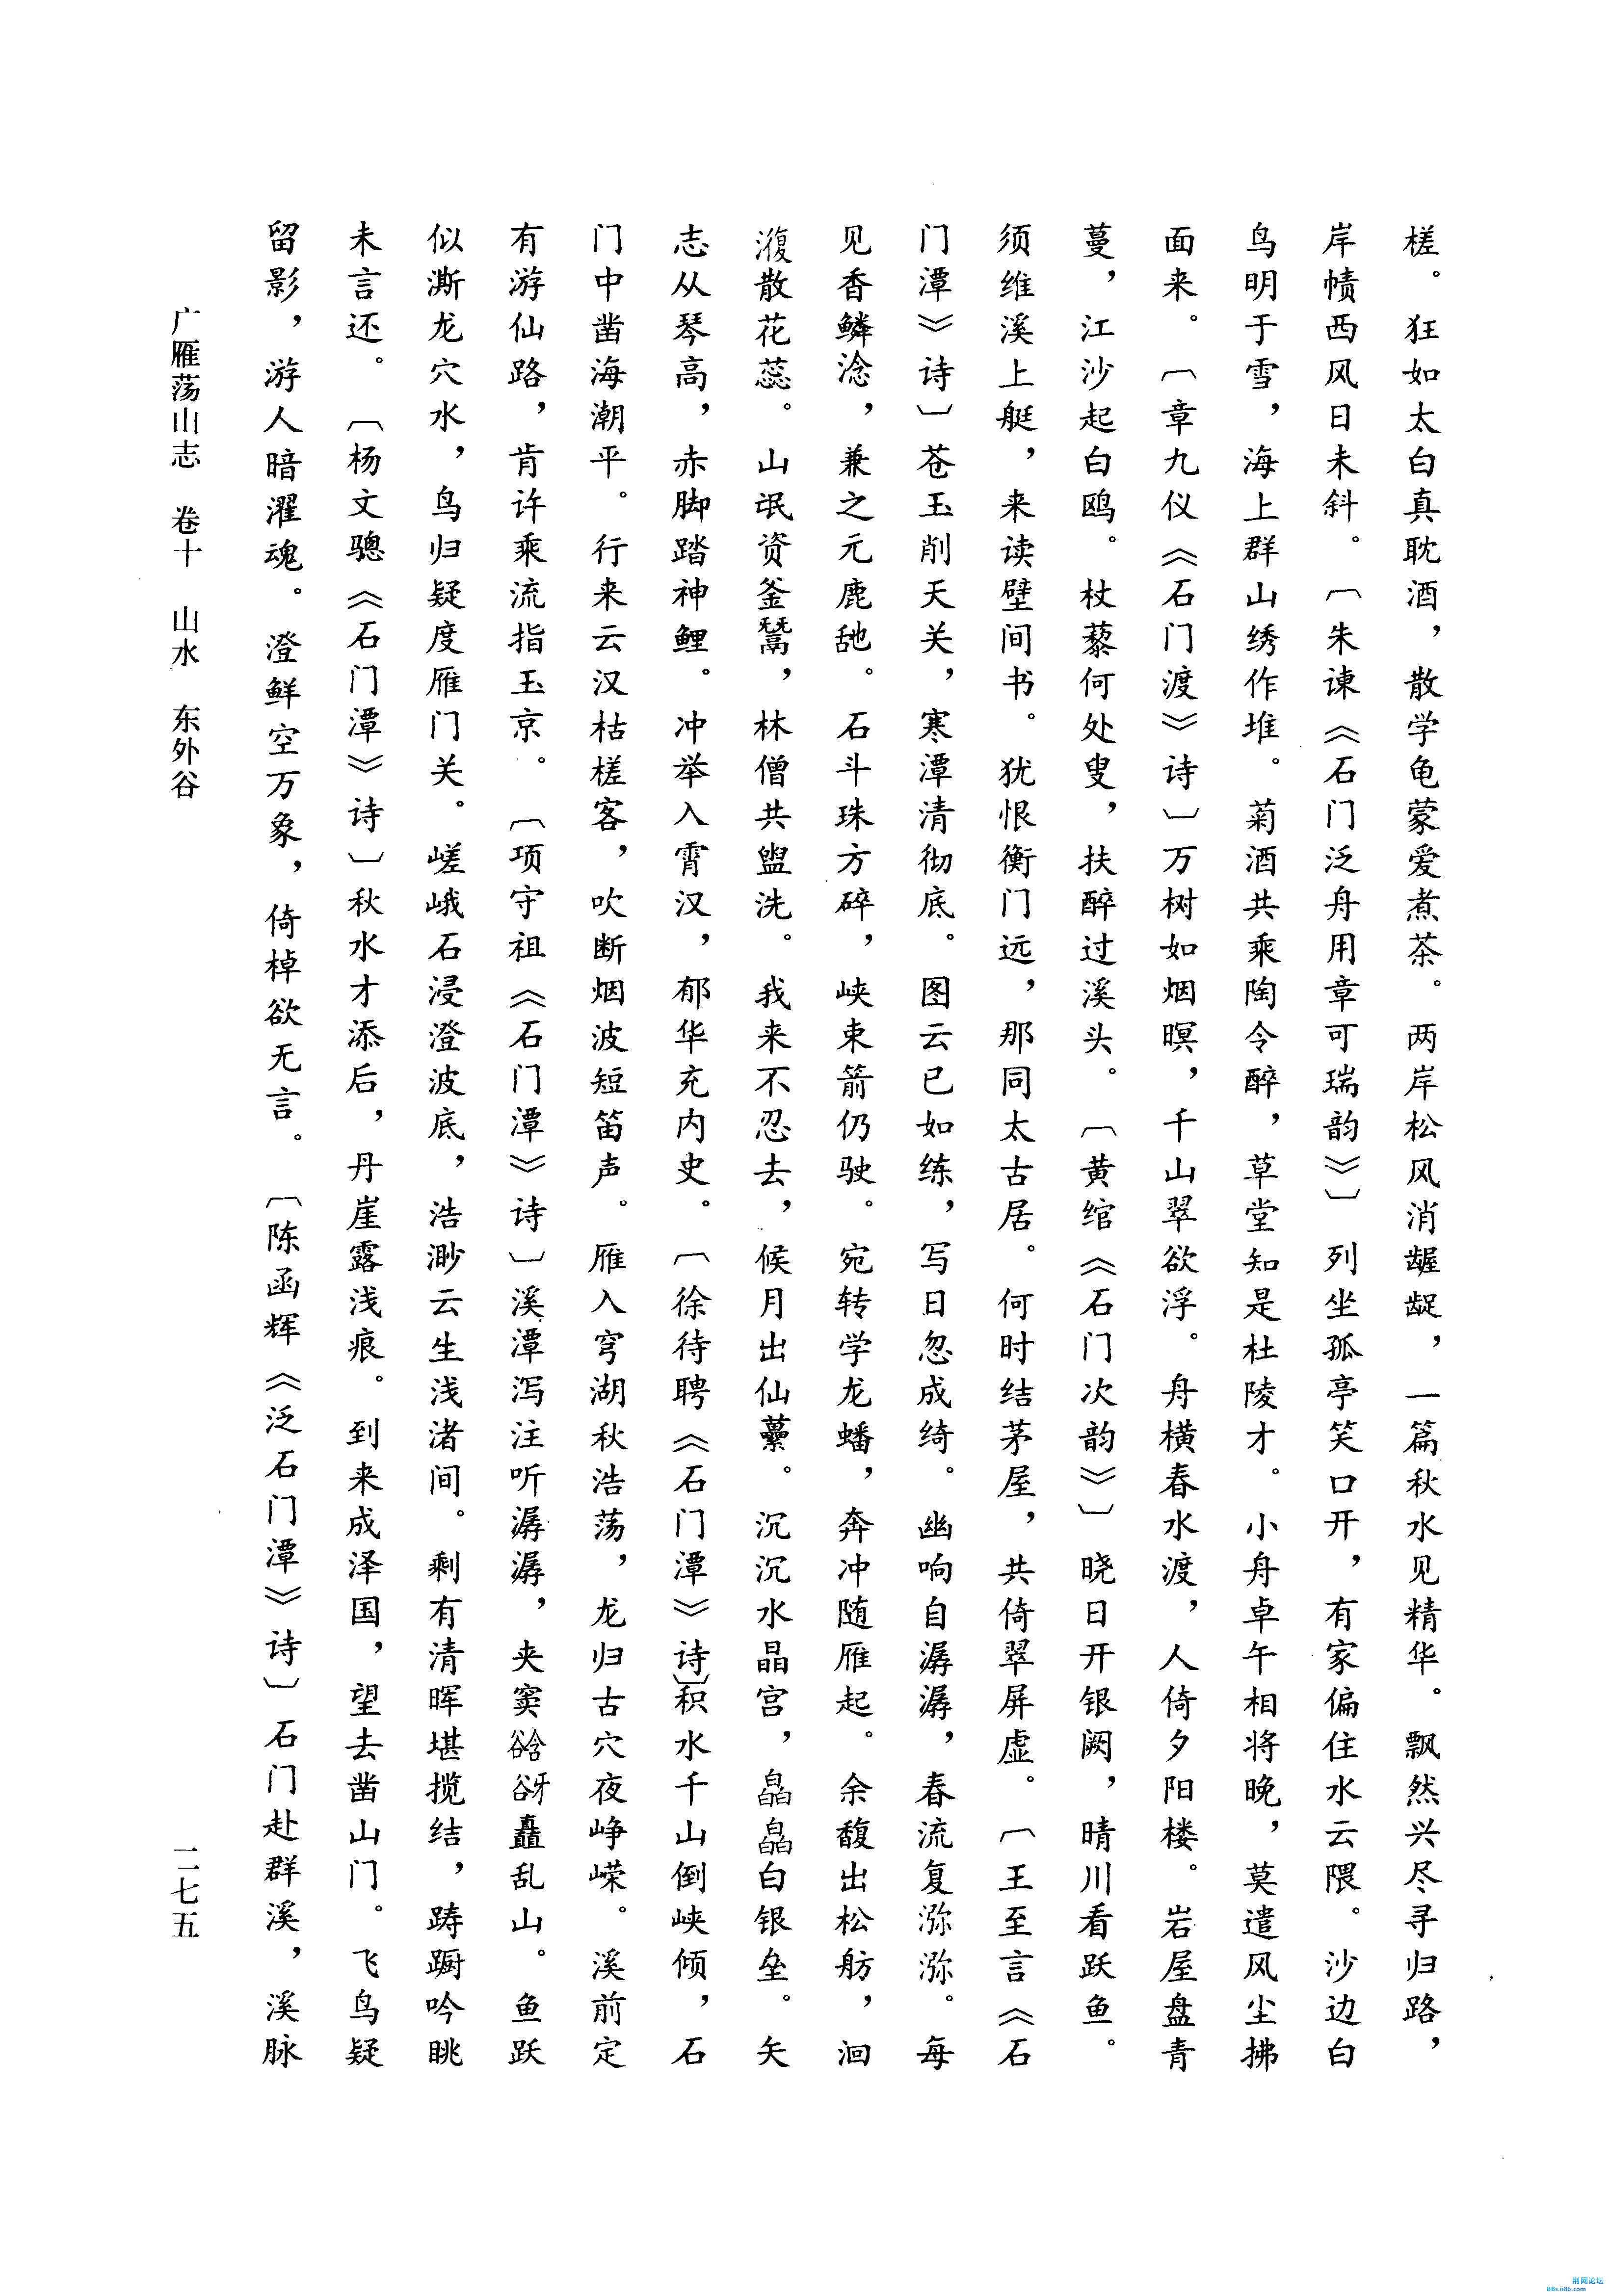 槎。狂如太白真耽酒，散学龟蒙爱煮茶。两岸松风消龌龊，一篇秋水见精华。飘然兴尽寻归路，
岸帻西风日未斜。〔朱谏《石门泛舟用章可瑞韵》〕列坐孤亭笑口开，有家偏住水云隈。沙边白
鸟明于雪，海上群山绣作堆。菊酒共乘陶令醉，草堂知是杜陵才。小舟卓午相将晚，莫遣风尘拂
面来。〔章九仪《石门渡》诗〕万树如烟暝，千山翠欲浮。舟横春水渡，人倚夕阳楼。岩屋盘青
蔓，江沙起白鸥。杖藜何处叟，扶醉过溪头。〔黄绾《石门次韵》〕晓日开银阙，晴川看跃鱼。
须维溪上艇，来读壁间书。犹恨衡门远，那同太古居。何时结茅屋，共倚翠屏虚。〔王至言《石
门潭》诗〕苍玉削天关，寒潭清彻底。图云已如练，写日忽成绮。幽响自潺潺，春流复浟浟。每
见香鳞淰，兼之元鹿虵。石斗珠方碎，峡束箭仍驶。宛转学龙蟠，奔冲随雁起。余馥出松舫，洄
澓散花蕊。山氓资釜鬵，林僧共盥洗。我来不忍去，候月出仙蘽。沉沉水晶宫，皛皛白银垒。矢
志从琴高，赤脚踏神鲤。冲举入霄汉，郁华充内史。〔徐待聘《石门潭》诗〕积水千山倒峡倾，石
门中凿海潮平。行来云汉枯槎客，吹断烟波短笛声。雁入穹湖秋浩荡，龙归古穴夜峥嵘。溪前定
有游仙路，肯许乘流指玉京。〔项守祖《石门潭》诗〕溪潭泻注听潺潺，夹窦谽谺矗乱山。鱼跃
似澌龙穴水，鸟归疑度雁门关。嵯峨石浸澄波底，浩渺云生浅渚间。剩有清晖堪揽结，踌蹰吟眺
未言还。〔杨文骢《石门潭》诗〕秋水才添后，丹崖露浅痕。到来成泽国，望去凿山门。飞鸟疑
留影，游人暗濯魂。澄鲜空万象，倚棹欲无言。〔陈函辉《泛石门潭》诗〕石门赴群溪，溪脉
广雁荡山志 卷十 山水 东外谷 二七五
荆网论坛
BBs.ii86.com